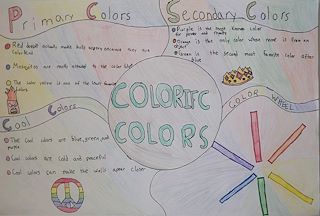 Primary Colors
Red doesn't actually make bulls angry because they are
colorblind
Mosquitos are really attracted to the color blue
The color yellow is one of the least favorite
colors
Secondary Colors
Purple is the color
for power and
Orange is the only color whose name is from an
object
Green is the second most favorite color after
blue
COLORIFC
COLORS
Cool Colors
The cool colors are blue, green, and
purple
Cool colors are calm and peaceful
Cool colors can make the walls appear closer
COLOR WHEEL